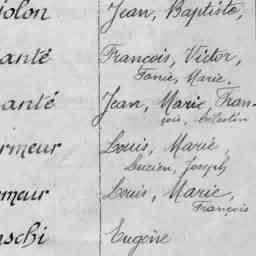 iolon Jean, Baptiste,
anté François, Victor,
Marie.
anté Jean, Marie, Fran-
çois, Célestin
rmeur Louis, Marie,
Lucien, Joseph
rmeur Louis, Marie,
François
nschi Eugène